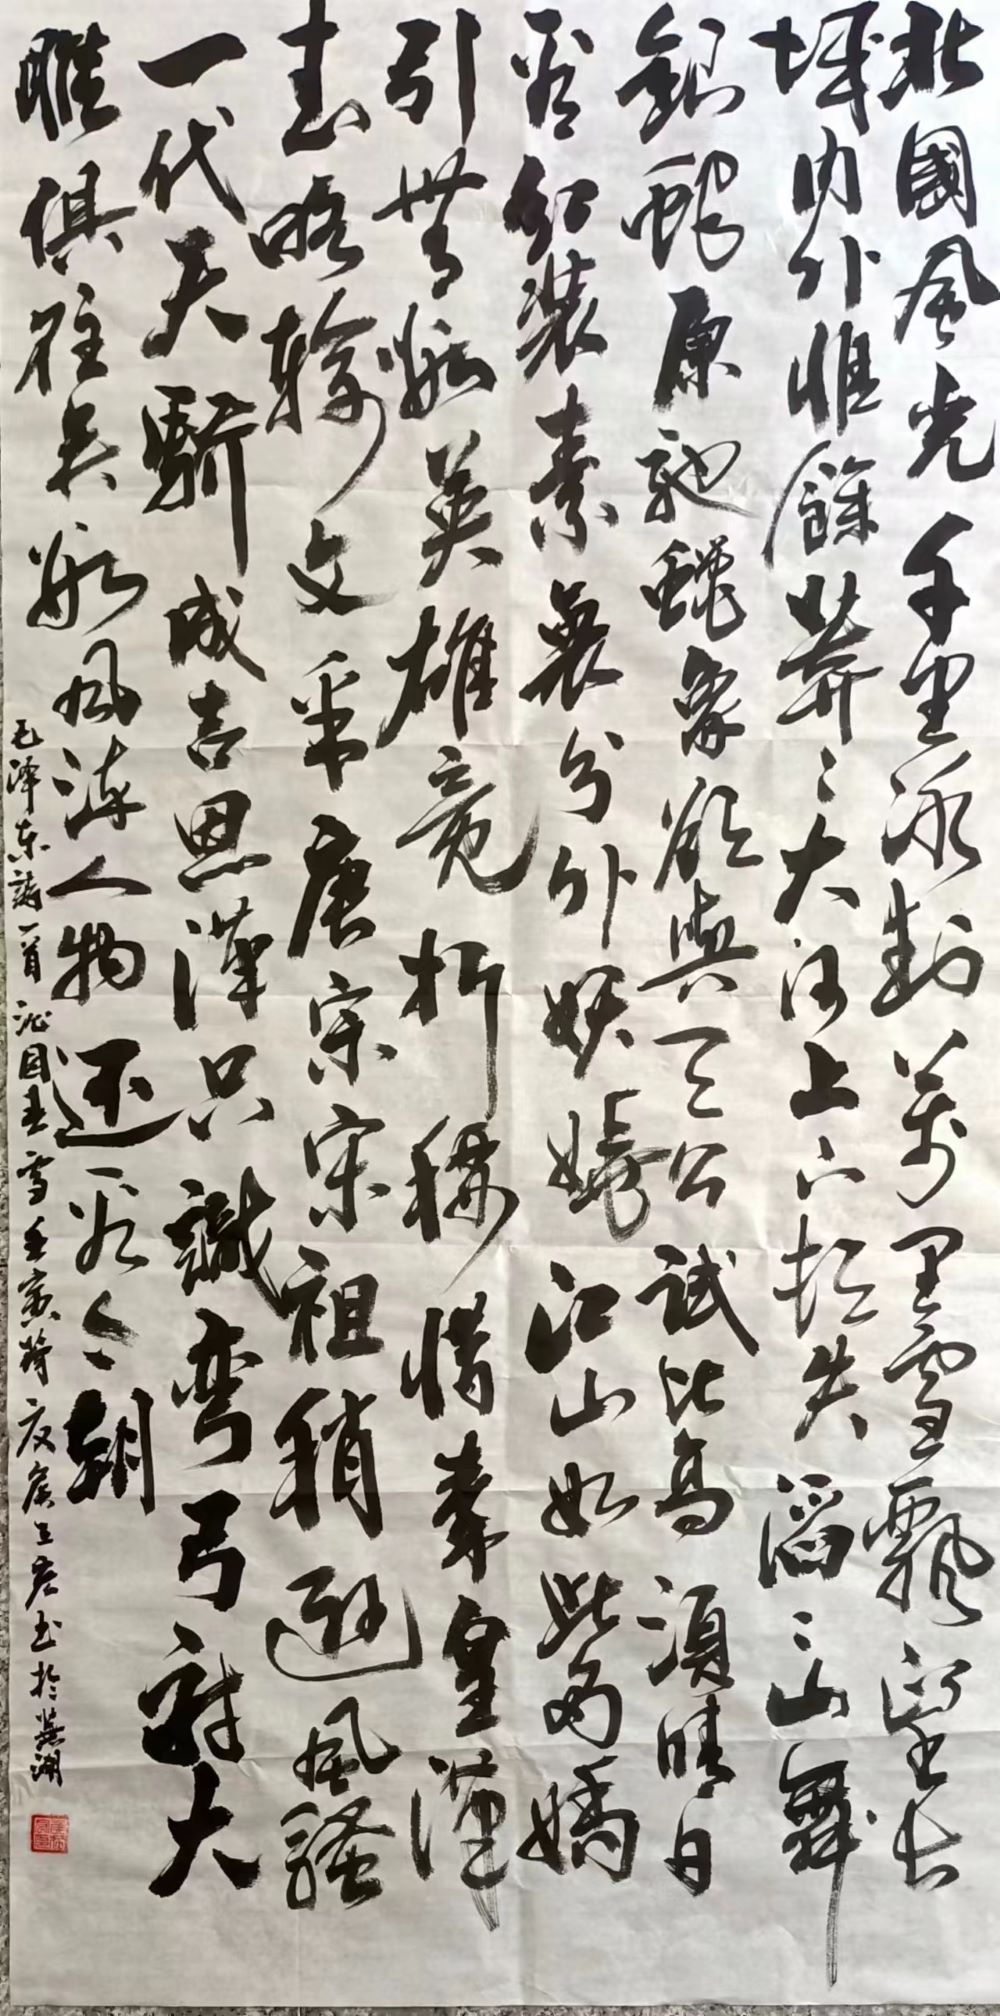 北國風光千里冰封萬里雪飄望長
城内外惟餘莽〻大河上下頓失滔〻山舞
銀蛇原馳蠟象欲與天公試比高須晴日
看紅裝素裹分外妖嬈江山如此多嬌
引無數英雄竞折腰惜秦皇漢
武略輸文采唐宗宋祖稍遜風騷
一代天驕成吉思漢只識彎弓射大
雕俱往矣數風流人物还看今朝
毛澤东詩一首沁園春雪壬寅书於蕪湖